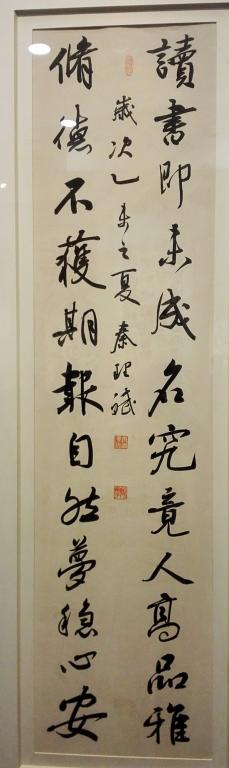 讀書即未成名究竟人高品雅
脩德不獲期報自然夢穩心安
歲次乙未之夏秦理斌